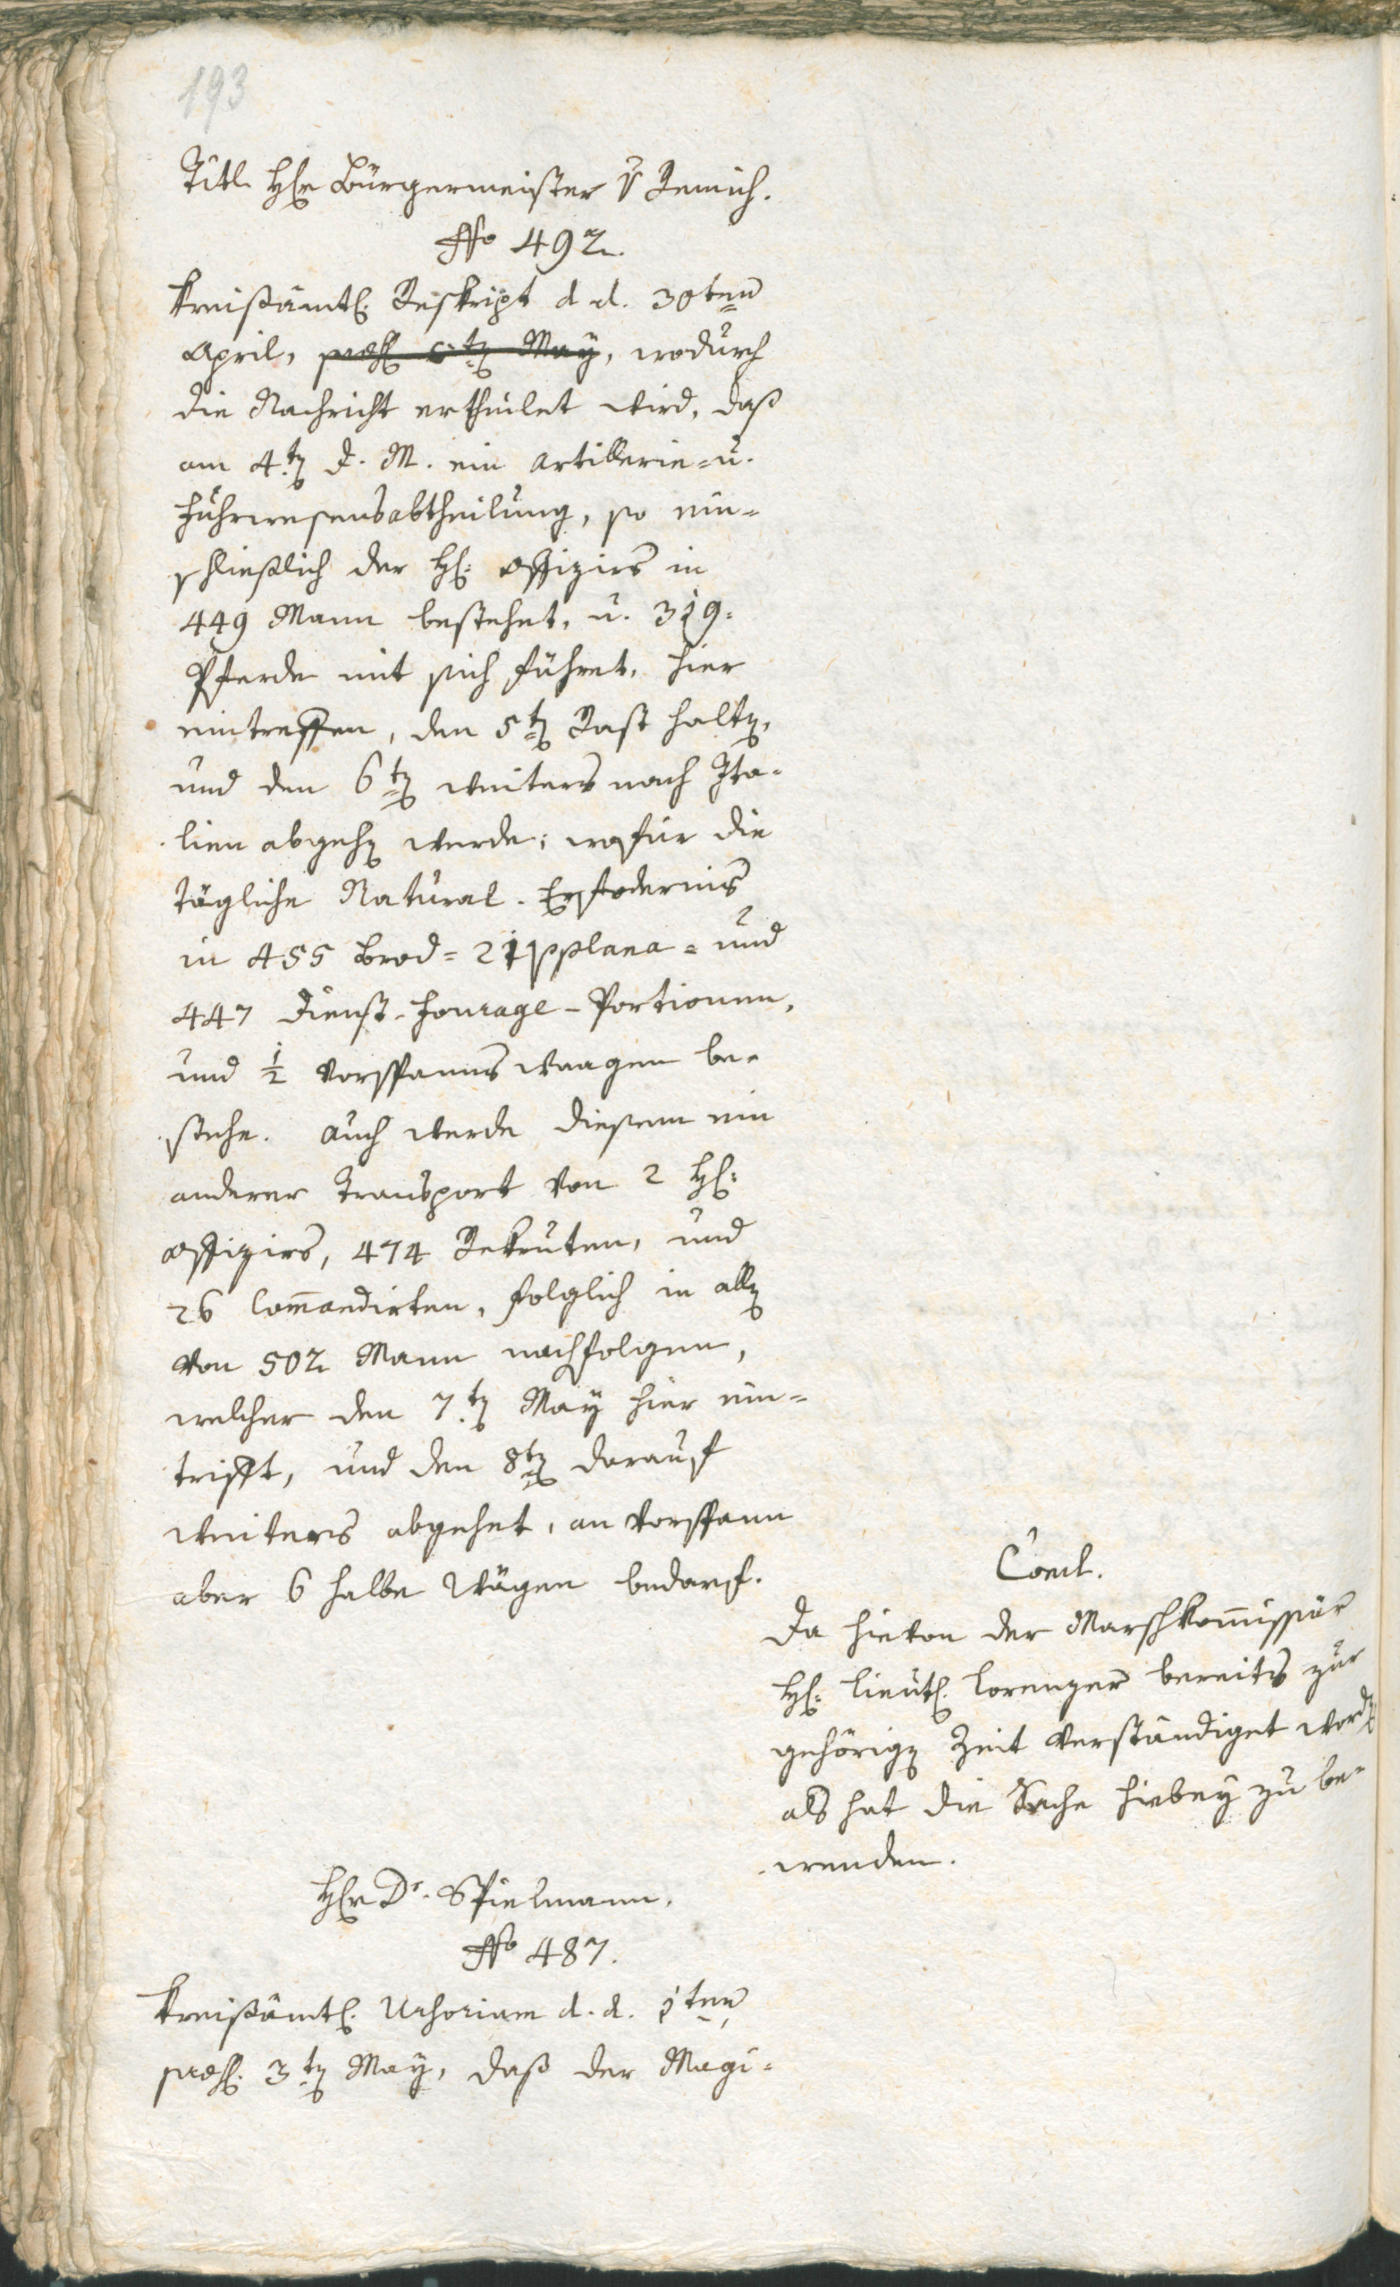 193
Titl. H[err] Bürgermeister v Remich.
No 492.
Kreißämtl. Reskript d. d. 30ten
April, præs. 5ten May, wodurch
die Nachricht ertheilet wird, daß
am 4ten d. M. ein Artillerie- u.
Fuhrwesensabtheilung, so ein-
schließlich der HH: Offiziers in
449 Mann bestehet, u. 319.
Pferde mit sich führet, hier
eintreffen, den 5ten Rast halten,
und den 6ten weiters nach Ita-
lien abgehen werde; wofür die
tägliche Natural-Erfoderniß
in 455 Brod- 21 und
447 Dienst-Fourage-Portionen,
und ½ Vorspannswaagen be-
stehe. Auch werde diesem ein
anderer Transport von 2 HH:
Offiziers, 474 Rekruten, und
26 Commandirten, folglich in allen
von 502 Mann nachfolgen,
welcher den 7ten May hier ein-
trifft, und den 8ten darauf
weiters abgehet, an Vorspann
aber 6 halbe Wägen bedarf.
Concl.
Da hievon der Marschkommissär
H: Lieut. Lorenzer bereits zur
gehörigen Zeit verständiget worden
als hat die Sache hiebey zu be-
wenden.
Herr Dr. Spielmann.
No 487.
Kreißämtl. Urhoriam d. d. 1ten
præs. 3ten May, daß der Magi-